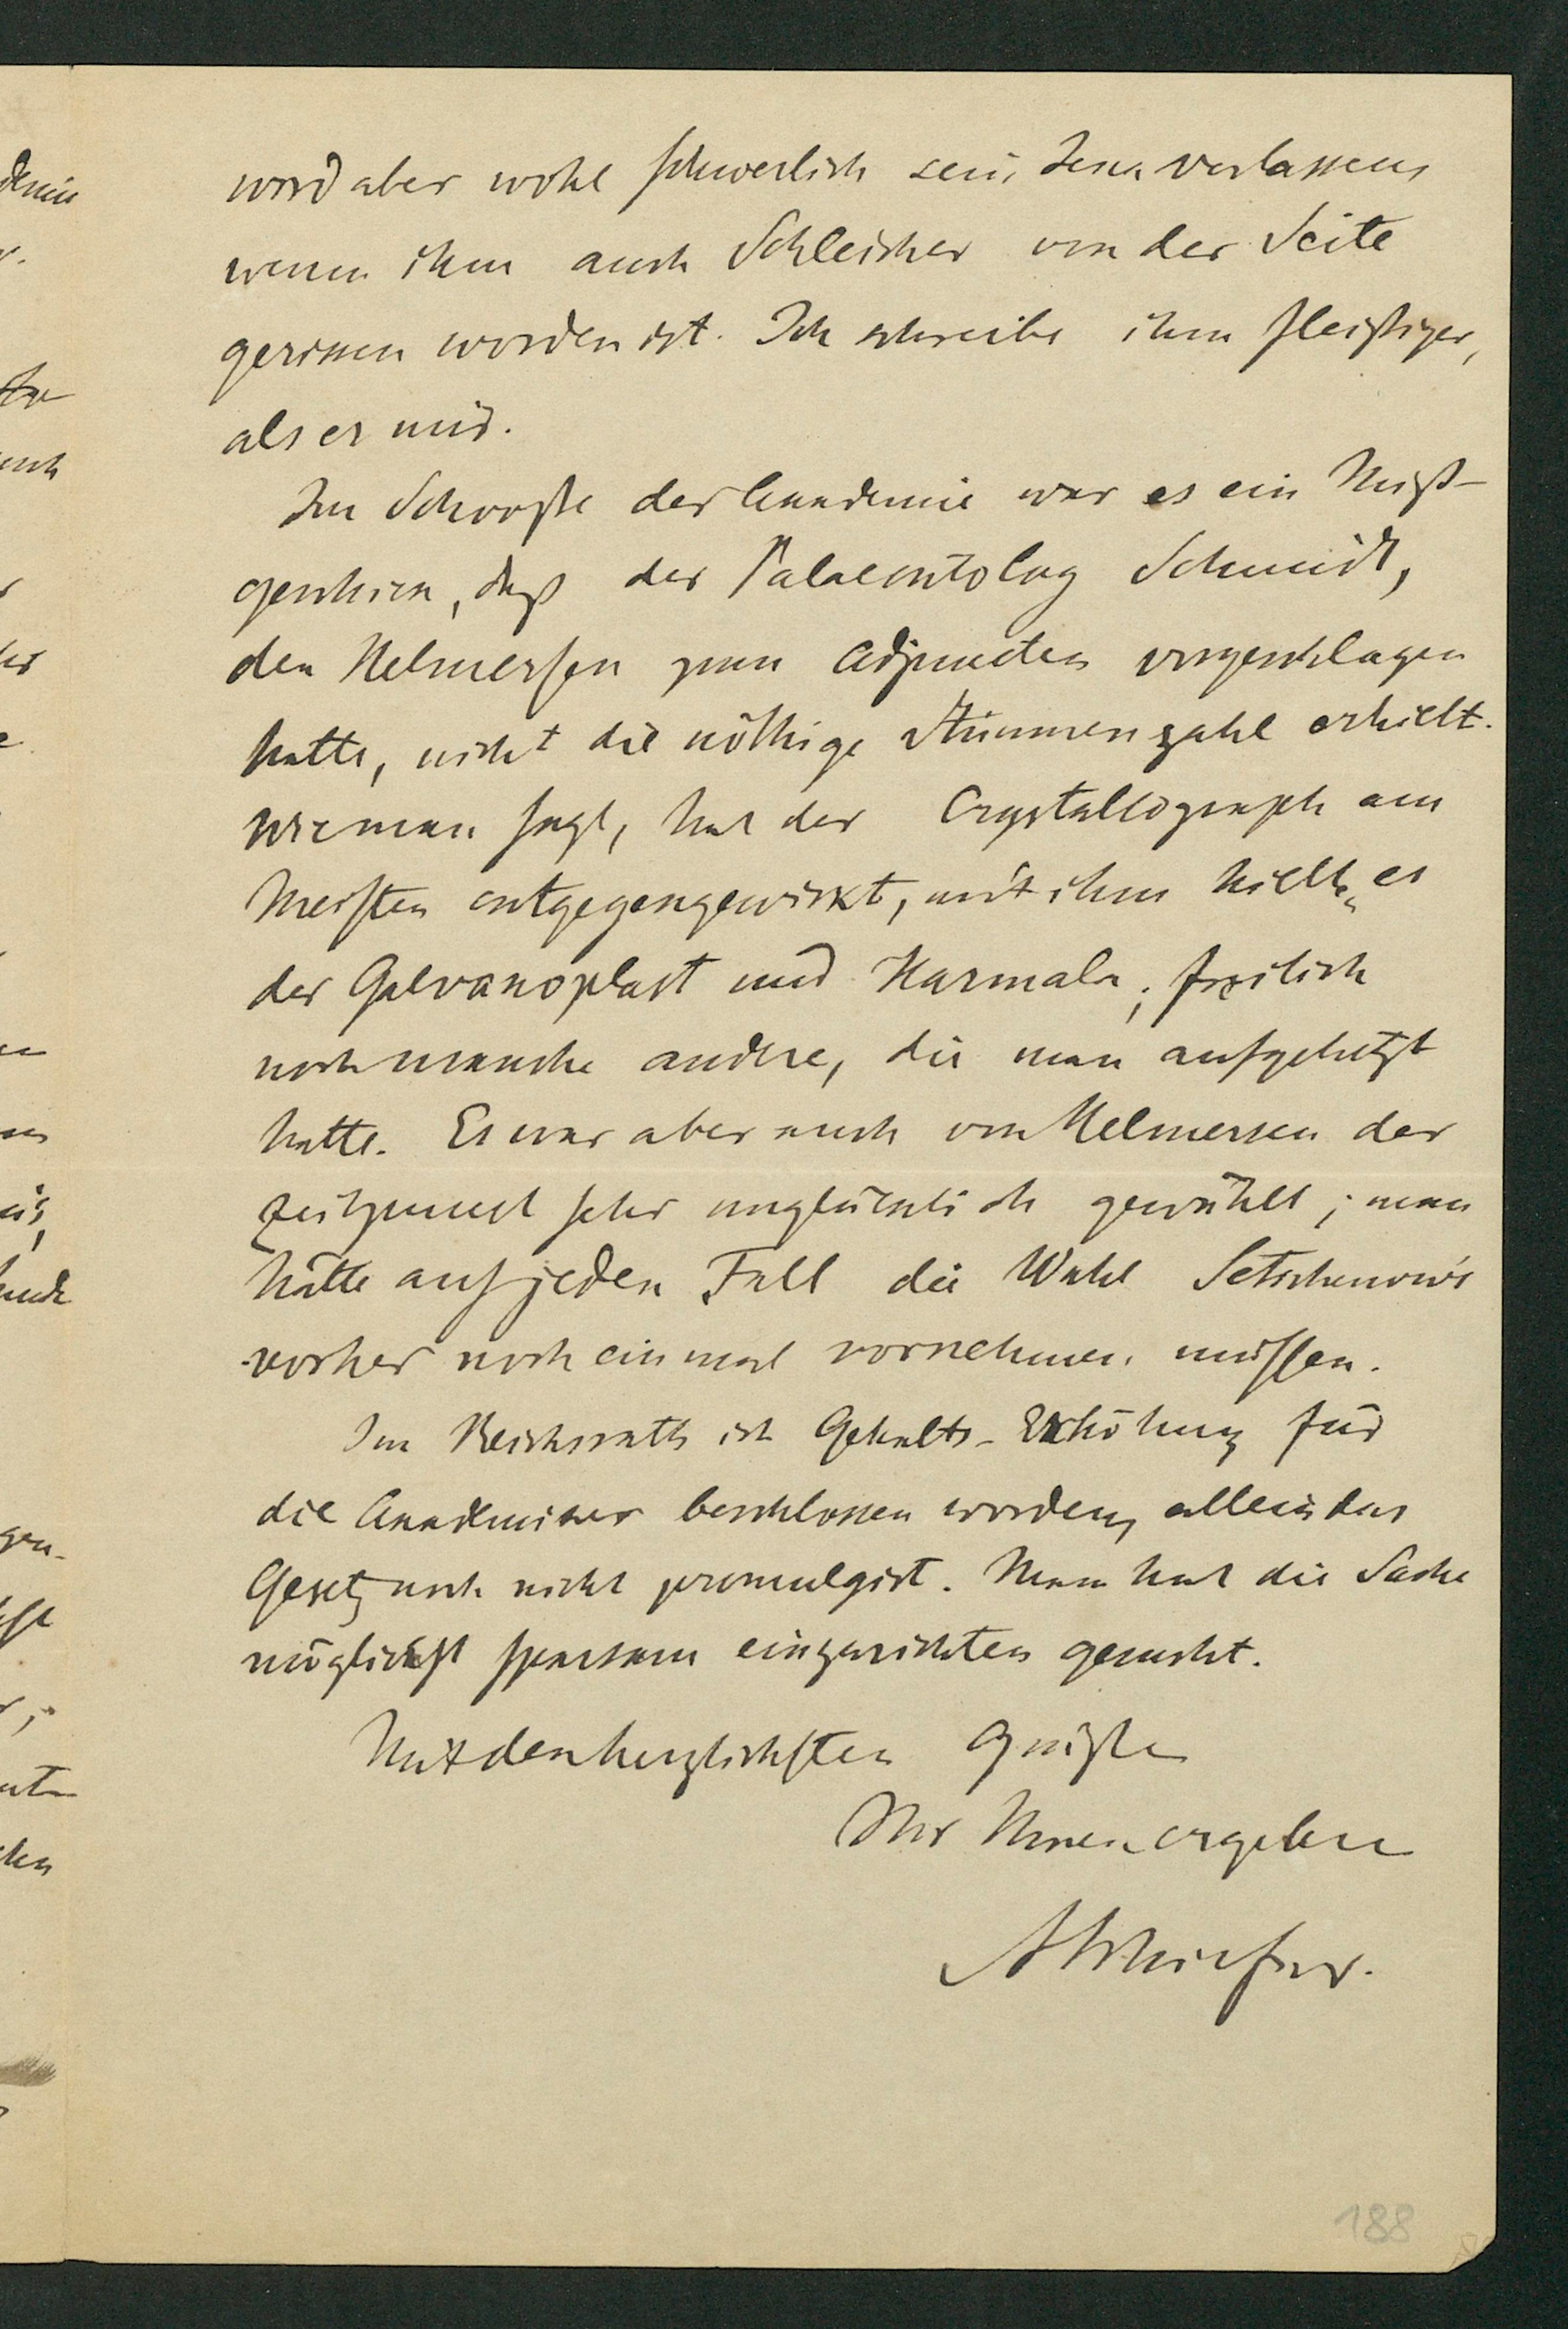 wird aber wohl schwerlich sein Jena verlassen,
wenn ihm auch Schleicher von der Seite
gerissen worden ist. Ich schreibe ihm fleißiger,
als er mir.
Im Schooße der Academie war es ein Miß-
geschick, daß der Palaeontolog Schmidt,
den Helmersen zum Adjuncten vorgeschlagen
hatte, nicht die nöthige Stimmenzahl erhielt.
Wie man sagt, hat der Crystallograph am
Meisten entgegengewirkt, mit ihm hielten es
der Galvanoplast und Harmala; freilich
noch manche andere, die man aufgehetzt
hatte. Es war aber auch von Helmersen der
Zeitpunct sehr unglücklich gewählt; man
hätte auf jeden Fall die Wahl Setschenow's
vorher noch einmal vornehmen müssen.
Im Reichsrath ist Gehalts-Erhöhung für
die Academiker beschlossen worden, allein das
Gesetz noch nicht promulgirt. Man hat die Sache
möglichst sparsam einzurichten gesucht.
Mit den herzlichsten Grüßen
Ihr Ihnen ergebener
ASchiefner.
188